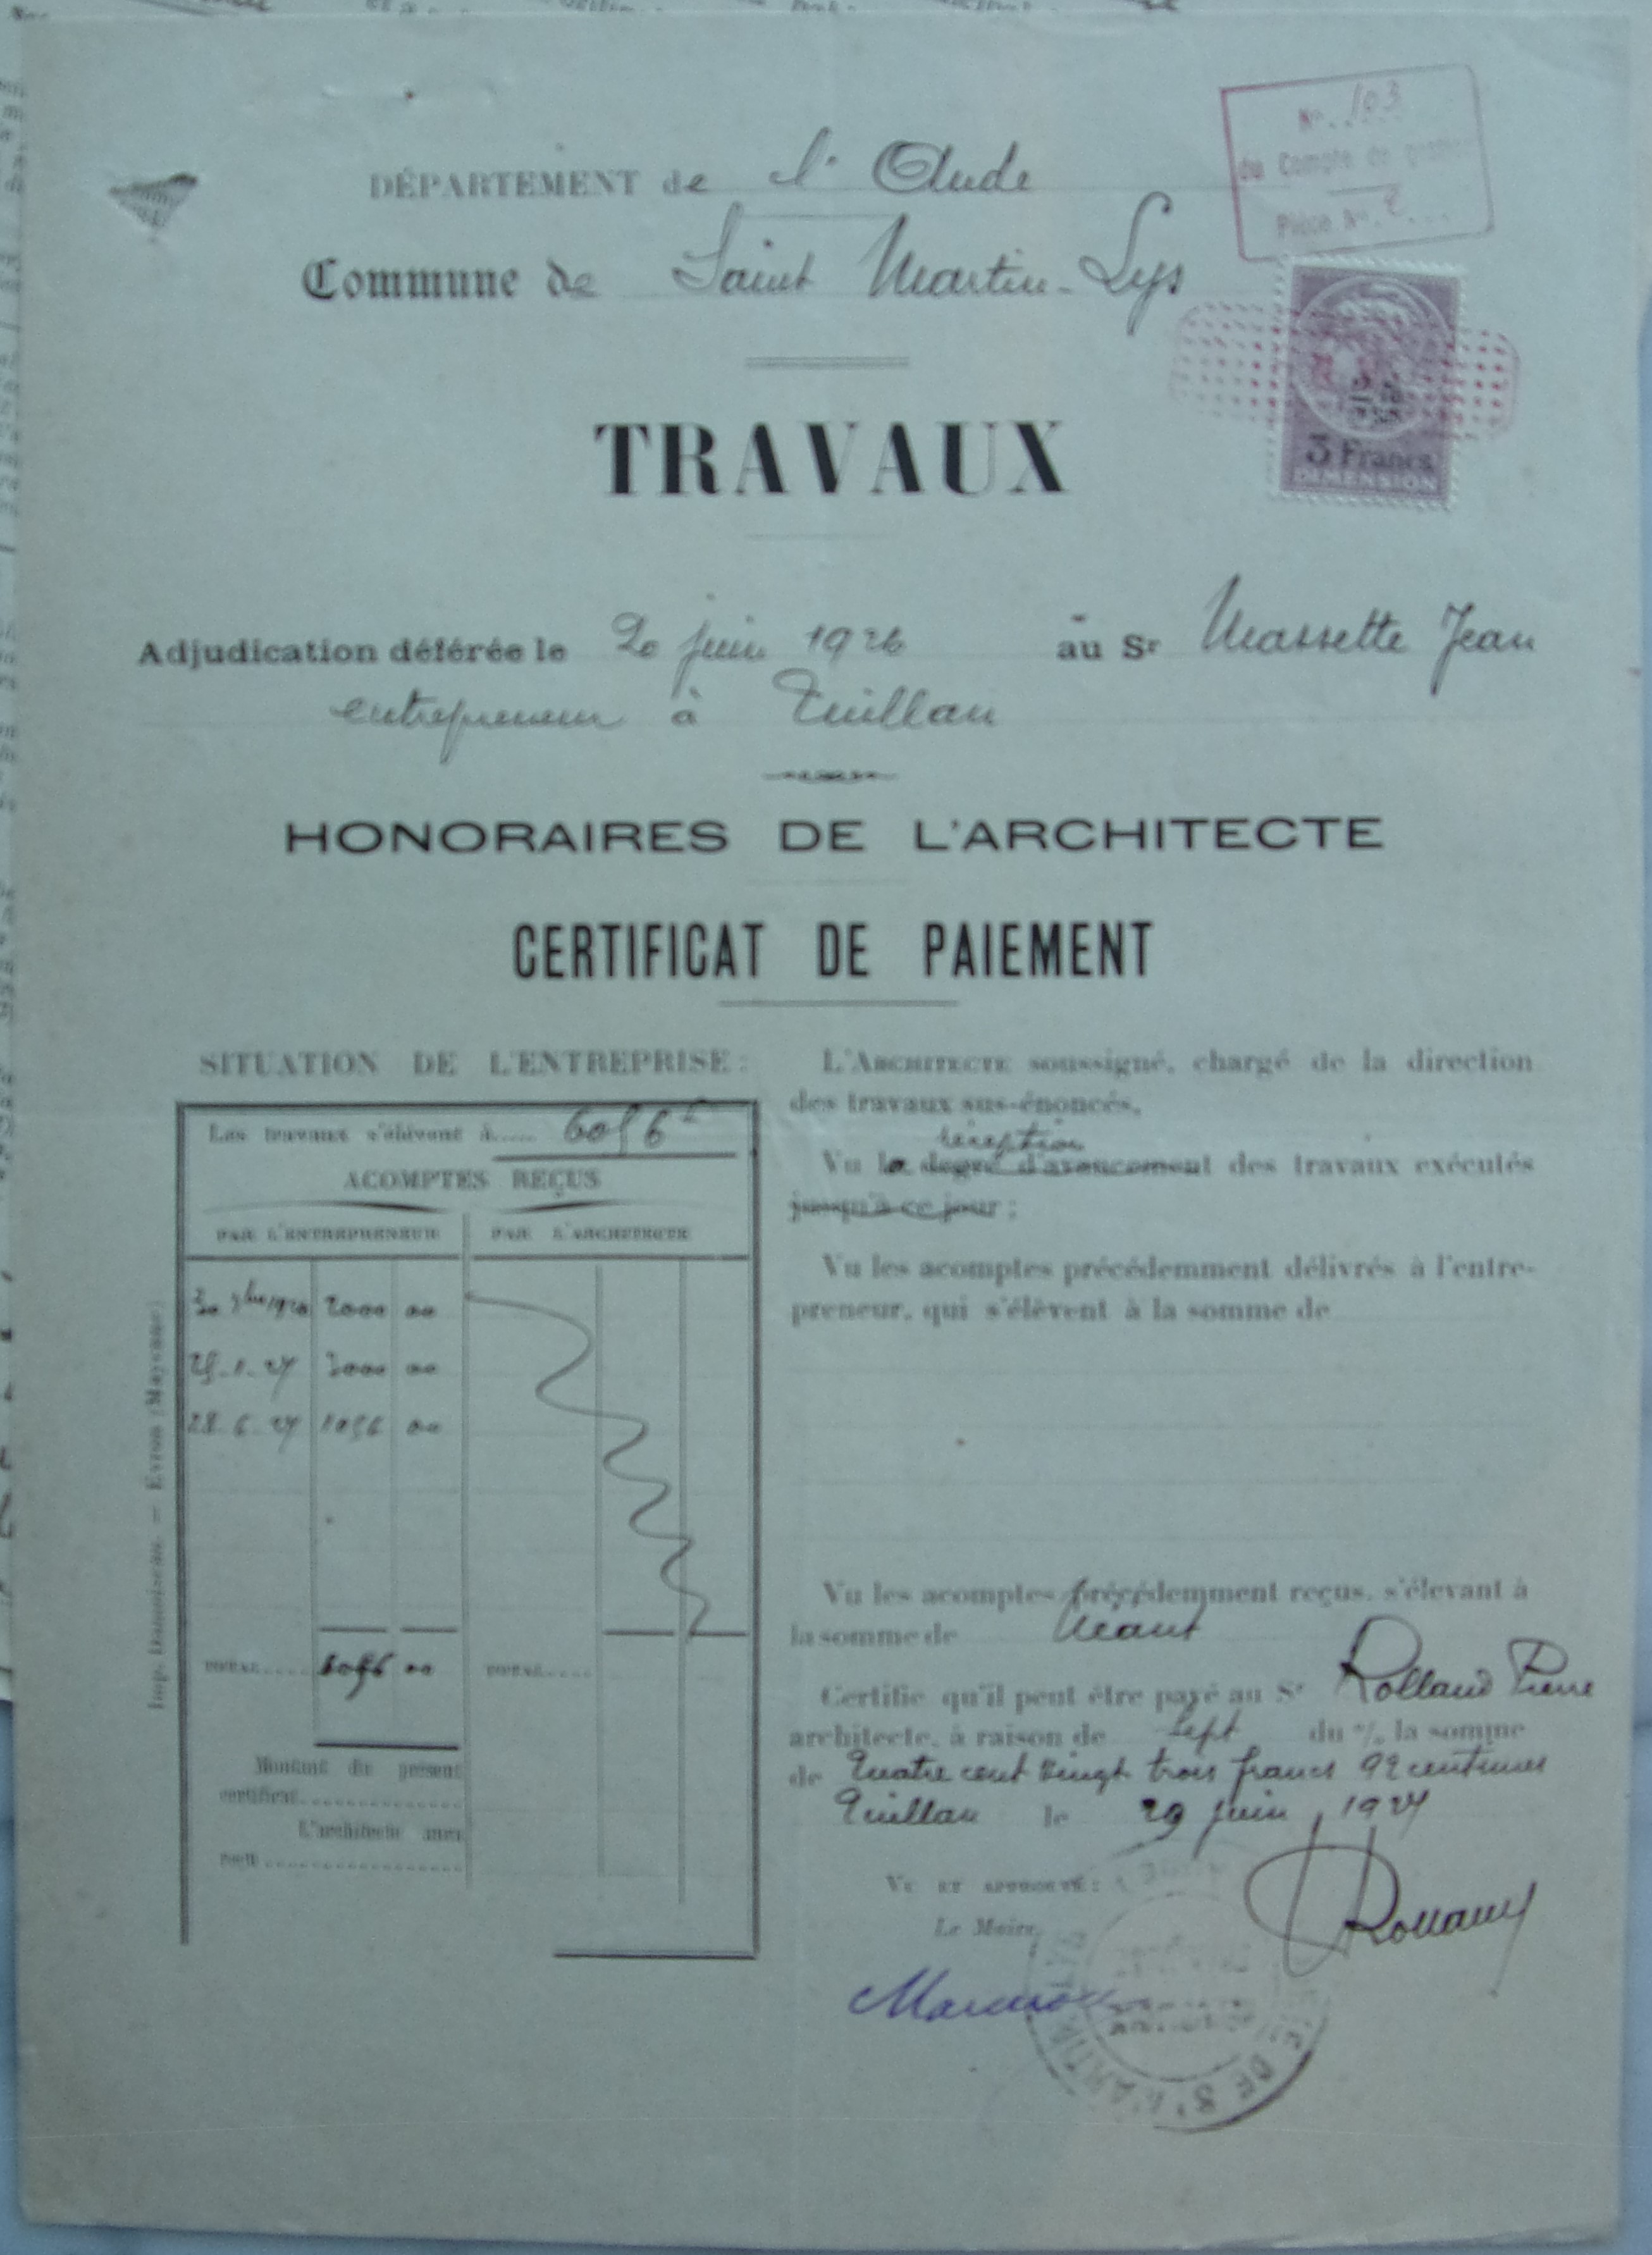 N° 103
du Compte de gestion
Pièce N°
DÉPARTEMENT de l'Aude
Commune de Saint Martin-Lys
3 Francs
DIMENSION
TRAVAUX
Adjudication déférée le 20 juin 1926 au Sr Massette Jean
entrepreneur à Quillan
HONORAIRES DE L'ARCHITECTE
CERTIFICAT DE PAIEMENT
SITUATION DE L'ENTREPRISE:
Les travaux s'élèvent à..... 6056 f
ACOMPTES REÇUS
PAR L'ENTREPRENEUR PAR L'ARCHITECTE
2000 00
25.1.27 3000 00
28.6.27 1056 00
TOTAL.... 6056 00 TOTAL.....
Montant du présent
certificat
L'architecte aura
reçu
Imp. — Evron (Mayenne)
L'ARCHITECTE soussigné, chargé de la direction
des travaux sus-énoncés,
réception
Vu la degré d'avancement des travaux exécutés
jusqu'à ce jour ;
Vu les acomptes précédemment délivrés à l'entre-
preneur, qui s'élèvent à la somme de
Vu les acomptes précédemment reçus, s'élevant à
la somme de Néant
Certifie qu'il peut être payé au Sr Rolland Pierre
architecte, à raison de Sept du % la somme
de Quatre cent vingt trois francs 92 centimes
Quillan le 29 juin 1927
VU ET APPROUVÉ :
Le Maire